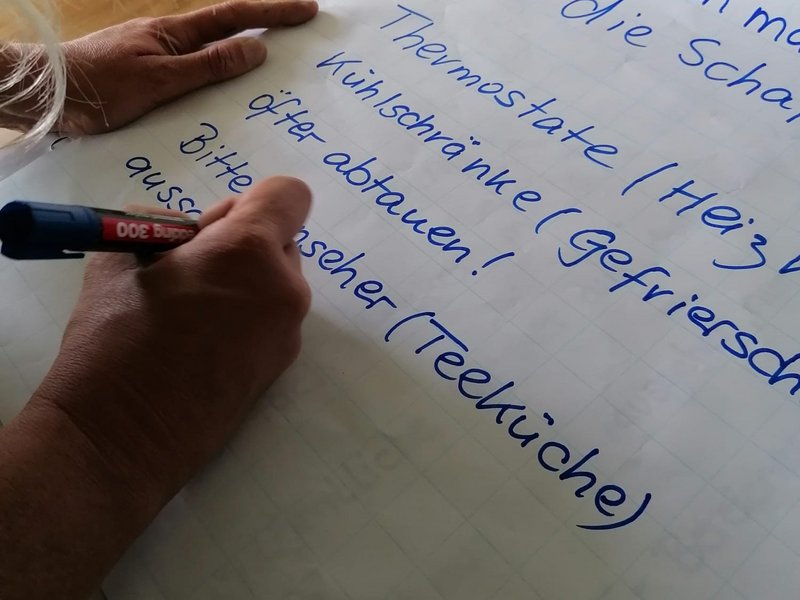 die
Thermostate (Heiz
Kühlschränke (Gefriersch
öfter abtauen!
Bitte
nseher (Teeküche)
auss
edding 300